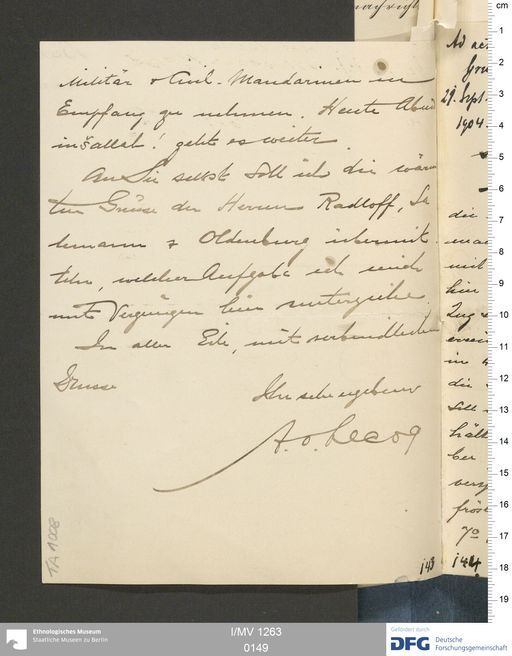 Militär & Civil-Mandarinen in
Empfang zu nehmen. Heute Abend
inšallah! geht es weiter.
An Sie selbst soll ich die wärm
ten Grüsse der Herren Radloff, Sa
lemann & Oldenburg übermit
teln, welcher Aufgabe ich mich
mit Vergnügen hier unterziehe.
In aller Eile, mit verbindlichsten
Grusse
Ihr sehr ergebener
A. v. Lecoq
TA 1008
143
29. Sept.
1904.
die
mit
in
die
70
144
cm
1
2
3
4
5
6
7
8
9
10
11
12
13
14
15
16
17
18
19
Ethnologisches Museum
Staatliche Museen zu Berlin
I/MV 1263
0149
Gefördert durch
DFG Deutsche
Forschungsgemeinschaft